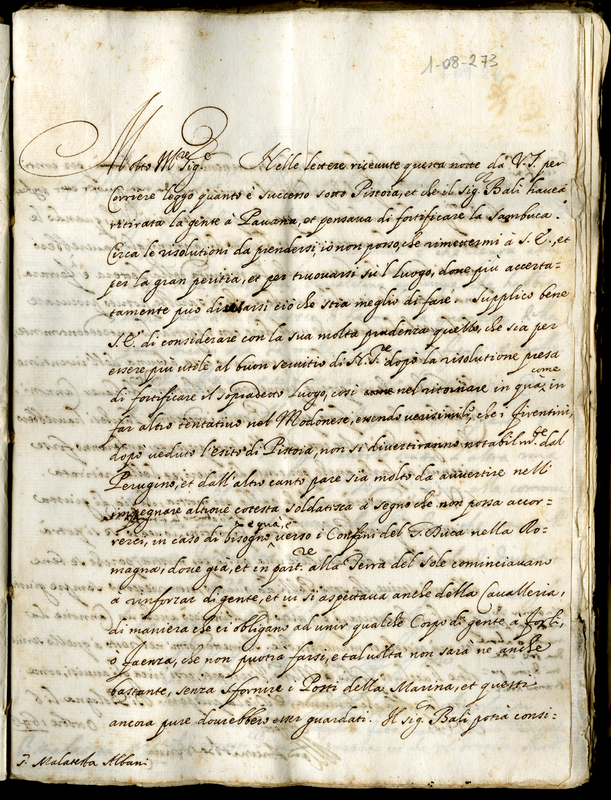 1-08-273
Molto Ill.tre Sig.re Nelle lettere ricevute questa notte da V.S. per
Corriere leggo quanto è successo sotto Pistoia, et che il Sig.r Bali havea
retirata la gente à Pavana, et pensava di fortificare la Sambuca.
Circa le risolutioni da prendersi, io non posso, che rimettermi à S.E., et
per la gran peritia, et per trovarsi su'l luogo, dove più accerta-
tamente può ciò che stia meglio di fare. Supplico bene
S.E. di considerare con la sua molta prudenza quello, che sia per
essere più utile al buon servitio di N. S.re dopo la risolutione presa
di fortificare il sopradetto Luogo, così nel ritornare in quà, come in
far altro tentativo nel Modonese, essendo verisimile, che i Fiorentini,
dopo veduto l'esito di Pistoia, non si divertiranno notabilm.te dal
Perugino, et dall'altro canto pare sia molto da avvertire nell'
impegnare altrove cotesta soldatesca à segno che non possa accor-
rerci, in caso di bisogno e quà, e verso i Confini del G. Duca nella Ro-
magna, dove già, et in part.re alla Terra del Sole cominciavano
a rinforzar di gente, et vi si aspettava anche della Cavalleria,
di maniera che ci obligano ad unir qualche Corpo di gente à Forlì,
o Faenza, che non potrà farsi, e tal volta non sarà ne anche
bastante, senza sfornire i Posti della Marina, et questi
ancora pure dovrebbero esser guardati. Il Sig.r Bali potrà consi-
S. Malatesta Albani